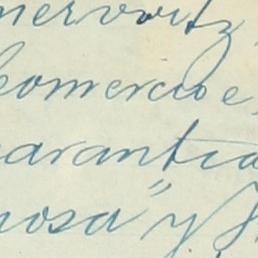 merovitz,
Comercio e
garantia
nosa" y